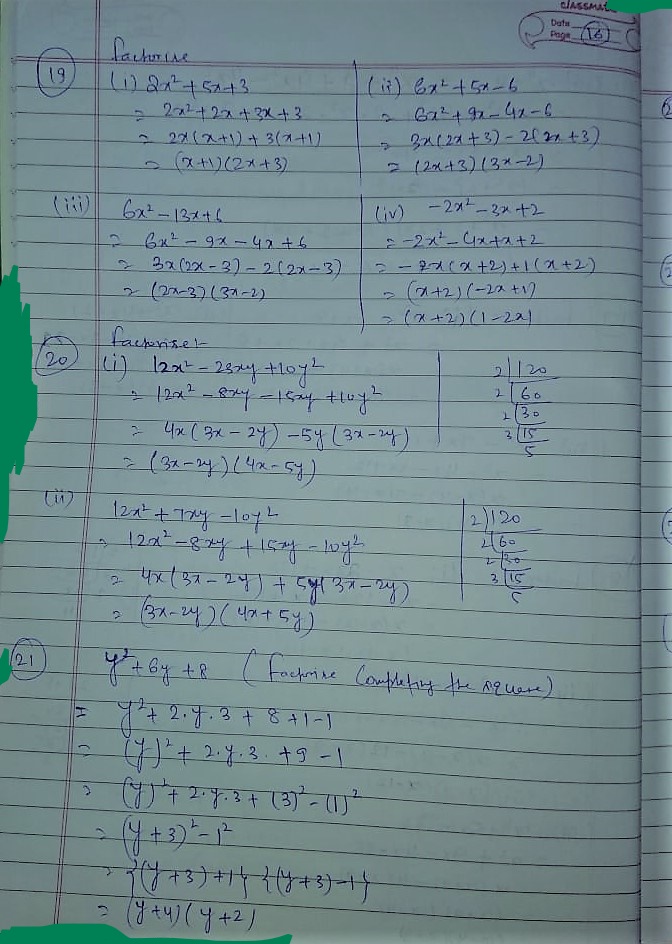 CLASSMATE
Date
Page 16
Factorise
19 (i) 2x² + 5x + 3
= 2x² + 2x + 3x + 3
= 2x(x+1) + 3(x+1)
= (x+1)(2x+3)
(ii) 6x² + 5x - 6
= 6x² + 9x - 4x - 6
= 3x(2x+3) - 2(2x+3)
= (2x+3)(3x-2)
(iii) 6x² - 13x + 6
= 6x² - 9x - 4x + 6
= 3x(2x-3) - 2(2x-3)
= (2x-3)(3x-2)
(iv) -2x² - 3x + 2
= -2x² - 4x + x + 2
= -2x(x+2) + 1(x+2)
= (x+2)(-2x+1)
= (x+2)(1-2x)
Factorise:-
20 (i) 12x² - 23xy + 10y²
= 12x² - 8xy - 15xy + 10y²
= 4x(3x-2y) - 5y(3x-2y)
= (3x-2y)(4x-5y)
2|120
2|60
2|30
3|15
5
(ii) 12x² + 7xy - 10y²
= 12x² - 8xy + 15xy - 10y²
= 4x(3x-2y) + 5y(3x-2y)
= (3x-2y)(4x+5y)
2|120
2|60
2|30
3|15
5
21 y² + 6y + 8 (Factorise Completing the square)
= y² + 2.y.3 + 8 + 1 - 1
= (y)² + 2.y.3. + 9 - 1
= (y)² + 2.y.3 + (3)² - (1)²
= (y+3)² - 1²
= {(y+3)+1} {(y+3)-1}
= (y+4)(y+2)